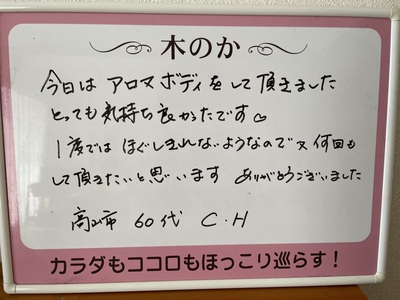 木のか
今日は アロマボディをして頂きました
とっても気持ち良かったです♡
1度では ほぐしきれないようなので又何回も
して頂きたいと思います ありがとうございました
高山市 60代 C.H
カラダもココロもほっこり巡らす!